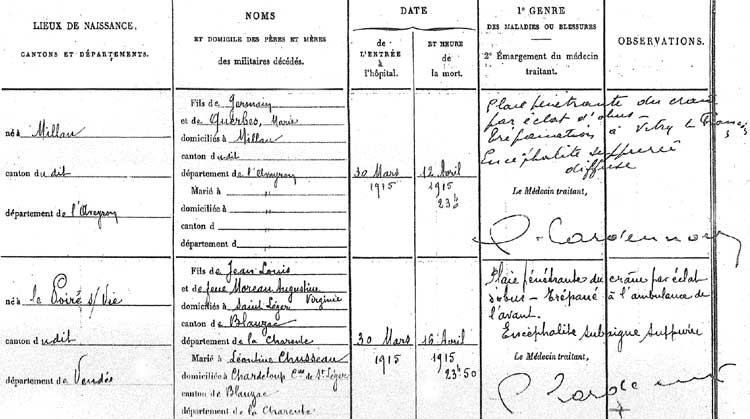 LIEUX DE NAISSANCE,
CANTONS ET DÉPARTEMENTS.
NOMS
ET DOMICILE DES PÈRES ET MÈRES
des militaires décédés.
DATE
de
L'ENTRÉE
à
l'hôpital.
ET HEURE
de
la mort.
1° GENRE
DES MALADIES OU BLESSURES
2° Émargement du médecin
traitant.
OBSERVATIONS.
né à Millau
canton du dit
département de l'Aveyron
Fils de Germain
et de Querbes, Marie
domiciliés à Millau
canton dudit
département de l'Aveyron
Marié à "
domiciliée à "
canton d "
département d "
30 Mars
1915
12 Avril
1915
23h
Plaie pénétrante du crâne
par éclat d'obus -
Trépanation à Vitry le François
Encéphalite suppurée
diffuse
Le Médecin traitant,
né à le Poiré s/ Vie
canton dudit
département de Vendée
Fils de Jean Louis
et de feue Moreau Augustine
Virginie
domiciliés à Saint Léger
canton de Blanzac
département de la Charente
Marié à Léontine Chusseau
domiciliée à Chardeloup Cne de St Léger
canton de Blanzac
département de la Charente
30 Mars
1915
16 Avril
1915
23h50
Plaie pénétrante du crâne par éclat
d'obus - Trépané à l'ambulance de
l'avant.
Encéphalite subaigue suppurée
Le Médecin traitant,